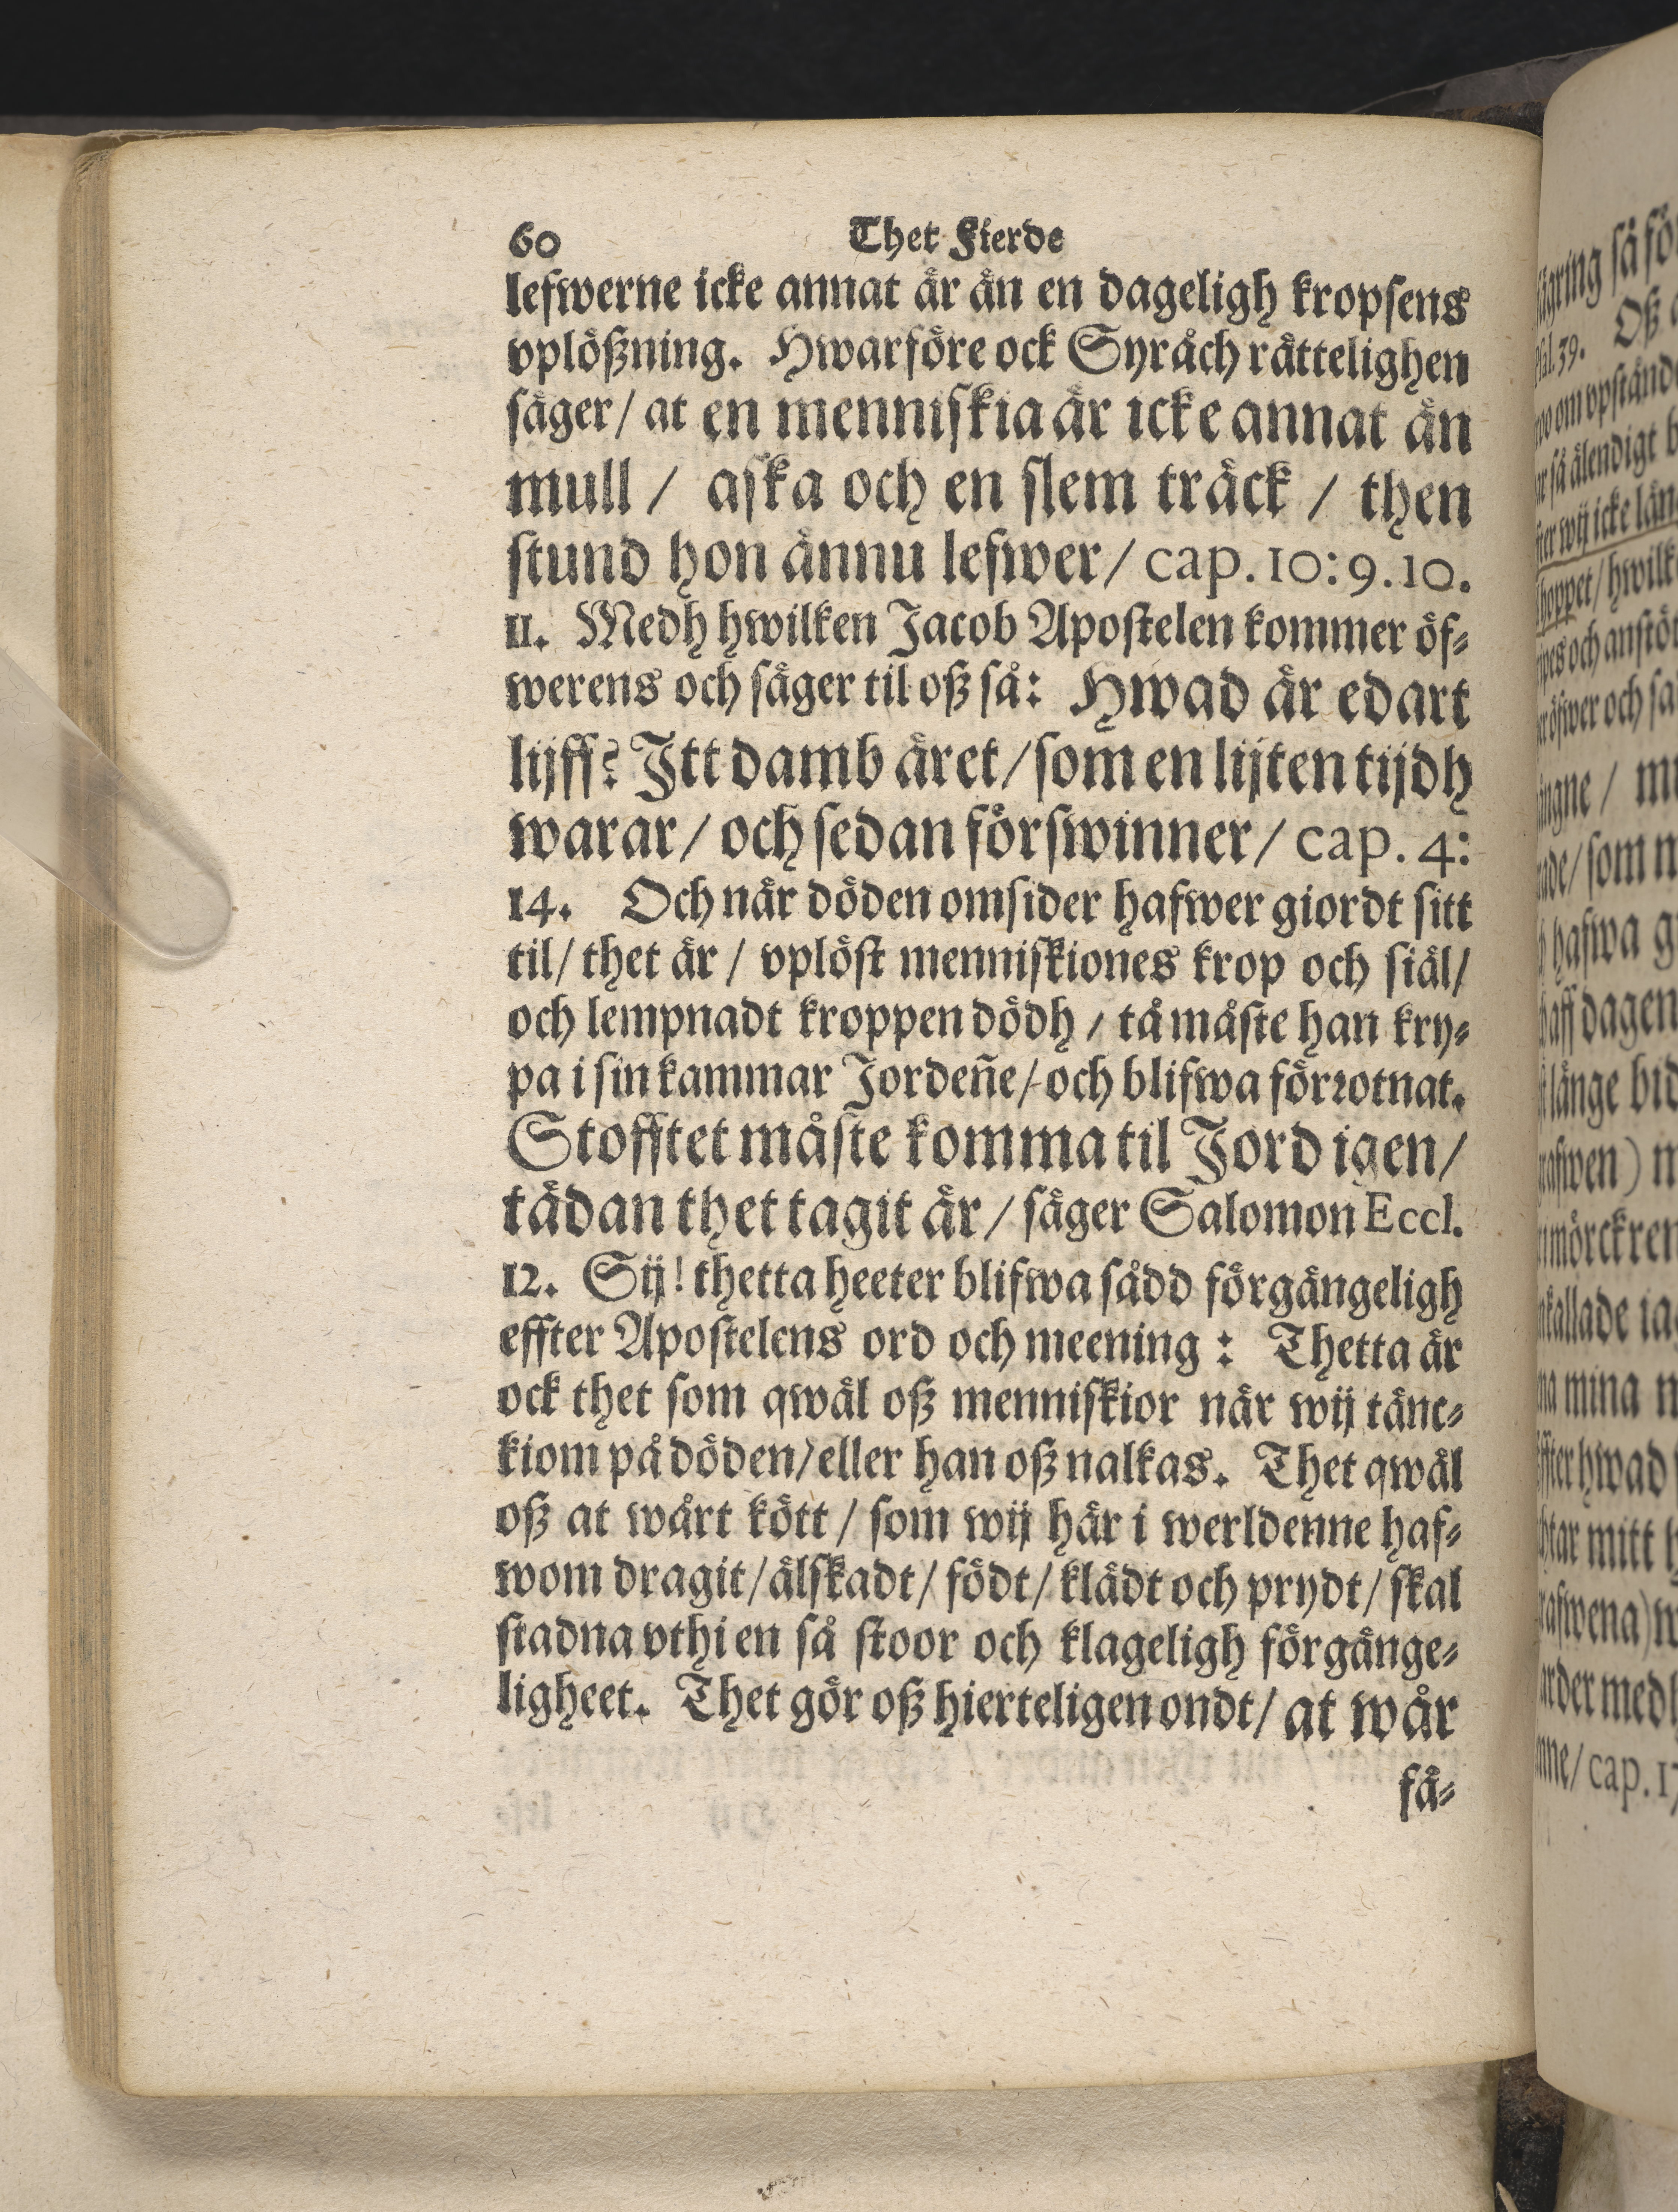 60 Thet Fierde
lefwerne icke annat är än en dageligh kropsens
vplößning. Hwarföre ock Syråch rättelighen
säger/ at en menniskia är icke annat än
mull / aska och en slem träck / then
stund hon ännu lefwer/ cap. 10: 9. 10.
11. Medh hwilken Jacob Apostelen kommer öf-
werens och säger til oß så: Hwad är edart
lijff? Itt damb äret/ som en lijten tijdh
warar/ och sedan förswinner/ cap. 4:
14. Och när döden omsider hafwer giordt sitt
til/ thet är / vplöst menniskiones krop och siäl/
och lempnadt kroppen dödh / tå måste han kry-
pa i sin kammar Jordeñe/ och blifwa förrotnat.
Stofftet måste komma til Jord igen/
tädan thet tagit är/ säger Salomon Eccl.
12. Sij! thetta heeter blifwa sådd förgängeligh
effter Apostelens ord och meening : Thetta är
ock thet som qwäl oß menniskior när wij tänc-
kiom på döden/ eller han oß nalkas. Thet qwäl
oß at wårt kött / som wij här i werldenne haf-
wom dragit/ älskadt/ födt/ klädt och prydt/ skal
stadna vthi en så stoor och klageligh förgänge-
ligheet. Thet gör oß hierteligen ondt/ at wår
få-